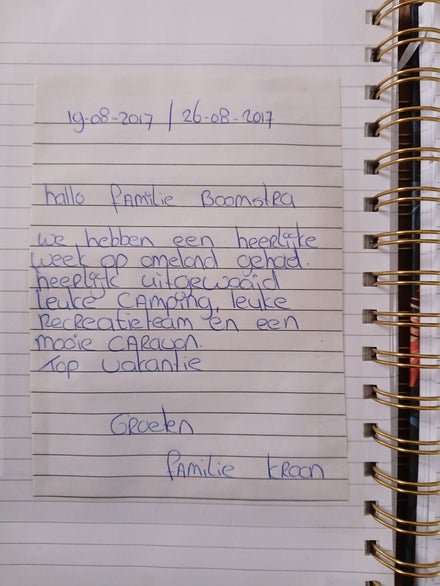 19-08-2017 / 26-08-2017
hallo familie Boomstra
we hebben een heerlijke
week op ameland gehad.
heerlijk uitgewaaid
leuke camping, leuke
Recreatieteam en een
mooie caravan.
Top vakantie
Groeten
familie kroon